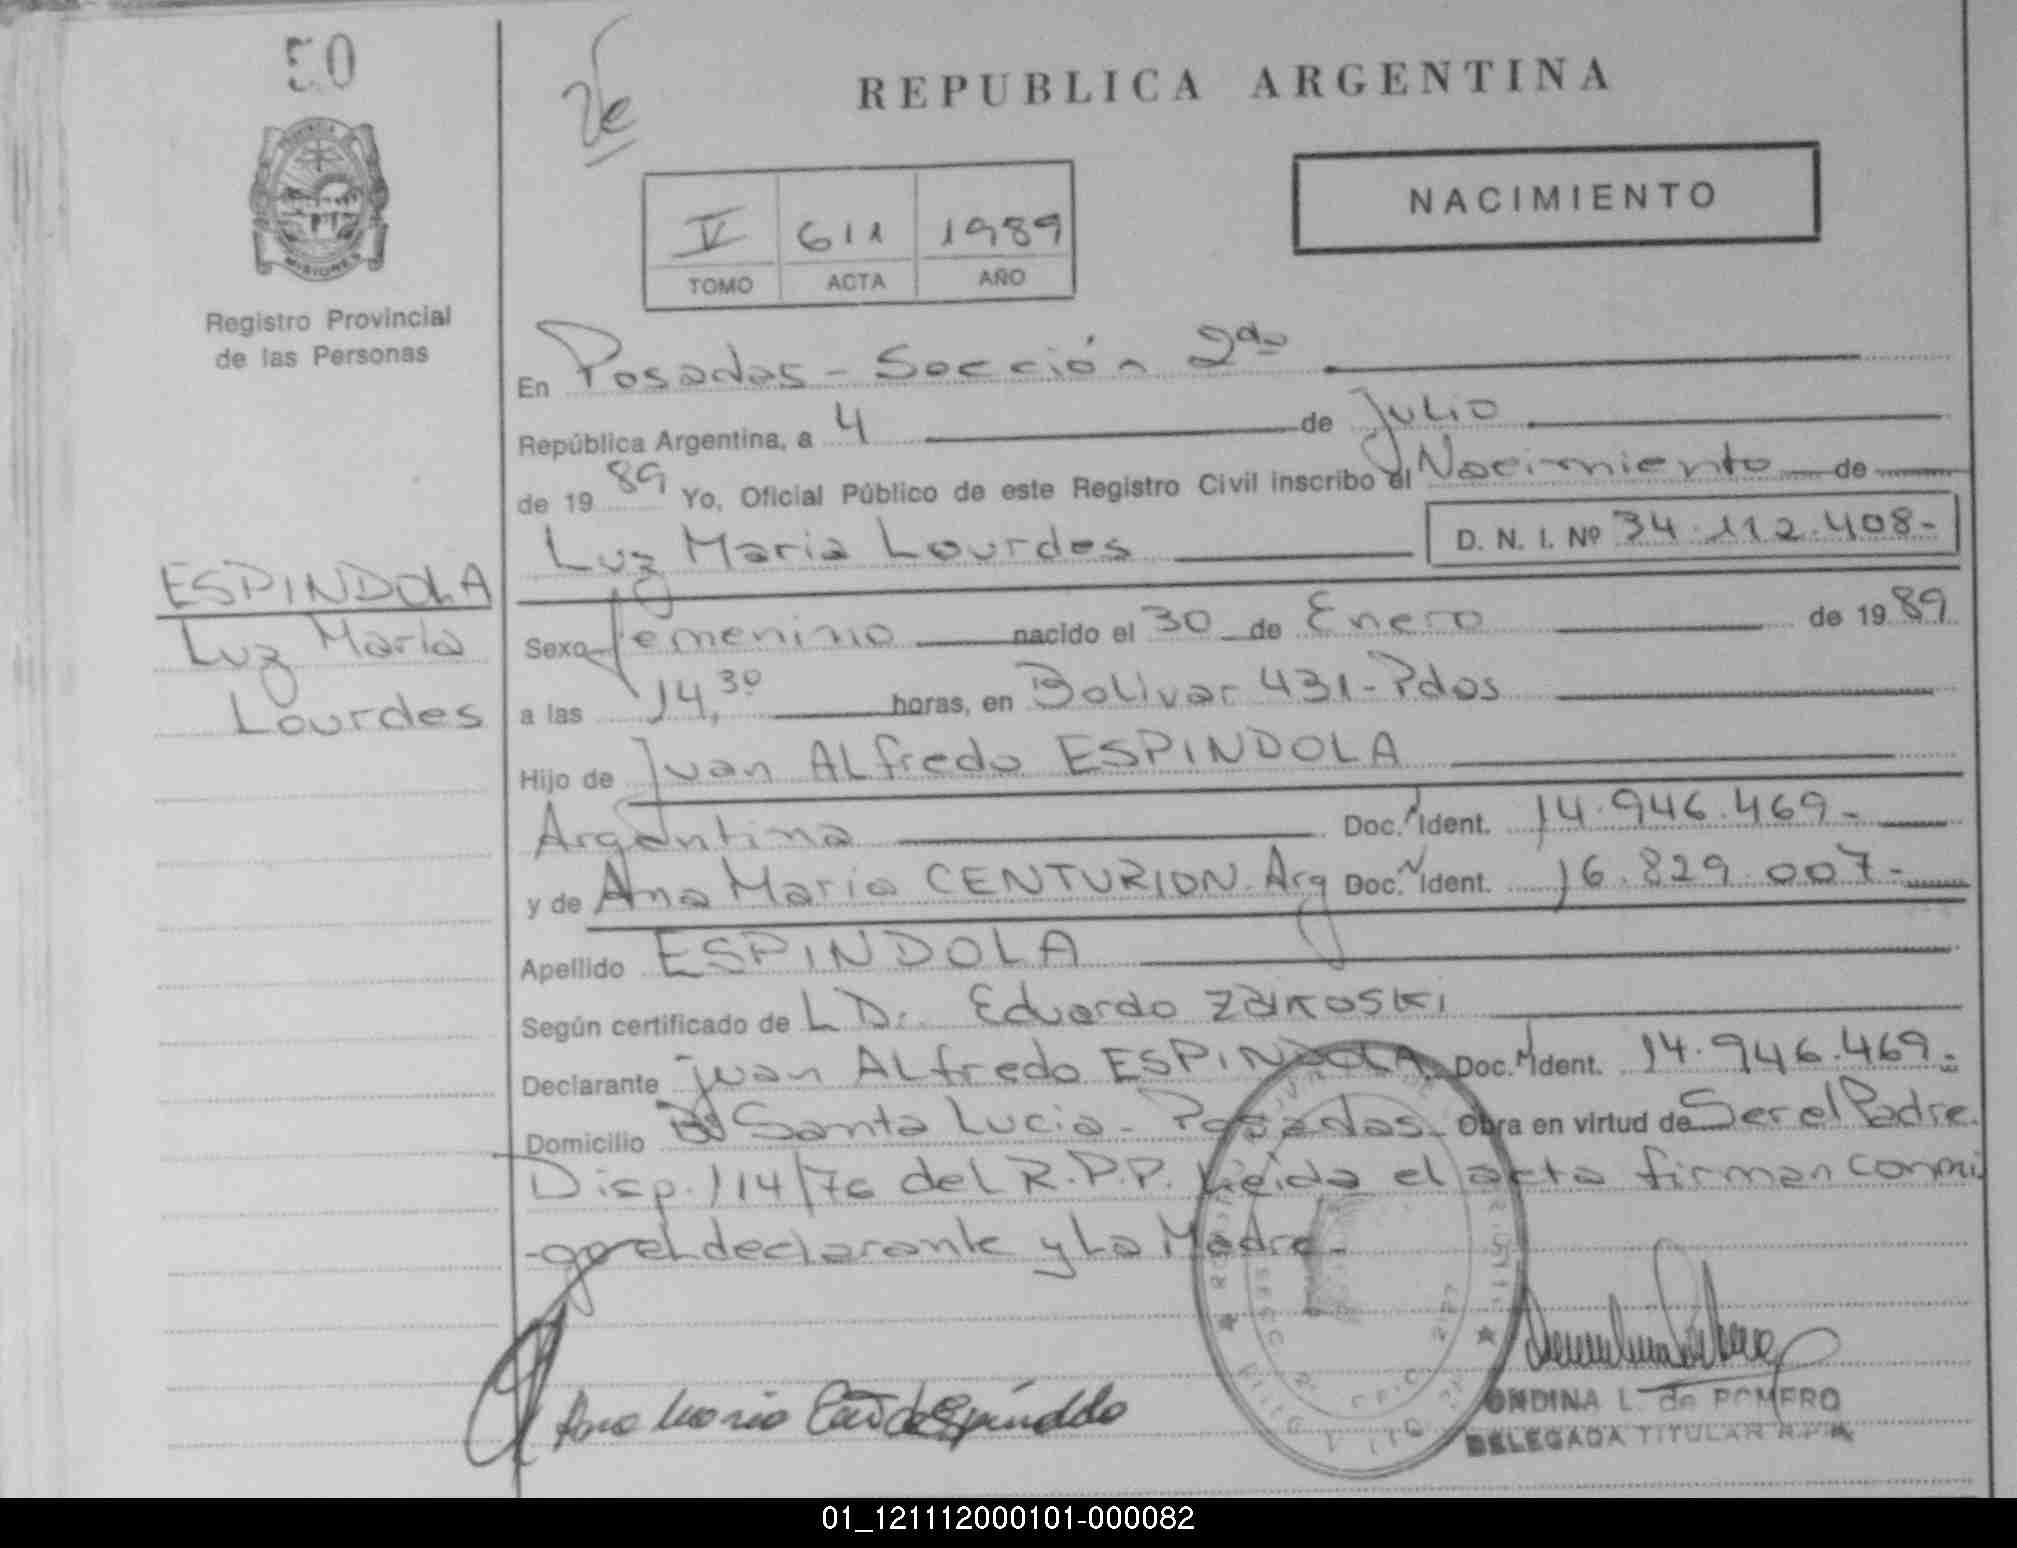 50
REPUBLICA ARGENTINA
NACIMIENTO
V 611 1989
TOMO ACTA AÑO
MISIONES
Registro Provincial
de las Personas
En Posadas - Sección 2da
República Argentina, a 4 de Julio
de 1989 Yo, Oficial Público de este Registro Civil inscribo el Nacimiento de
Luz Maria Lourdes D. N. I. Nº 34.112.408-
ESPINDOLA
Luz María
Lourdes
Sexo femenino nacido el 30 de Enero de 1989
a las 14,30 horas, en Bolivar 431-Pdas
Hijo de Juan ALfredo ESPINDOLA
Argentina Doc. Ident. 14.946.469-
y de Ana Maria CENTURION. Arg Doc. Ident. 16.829.007-
Apellido ESPINDOLA
Según certificado de L Dr. Eduardo
Declarante Juan ALfredo ESPINDOLA. Doc. Ident. 14.946.469-
Domicilio Bº Santa Lucia - Posadas. Obra en virtud de Ser el Padre.
Disp. 114/76 del R.P.P. Leida el acta firman conmi
-go el declarante y La Madre.-
Ana Maria de Espíndola
ONDINA L. de ROMERO
DELEGADA TITULAR
01_121112000101-000082